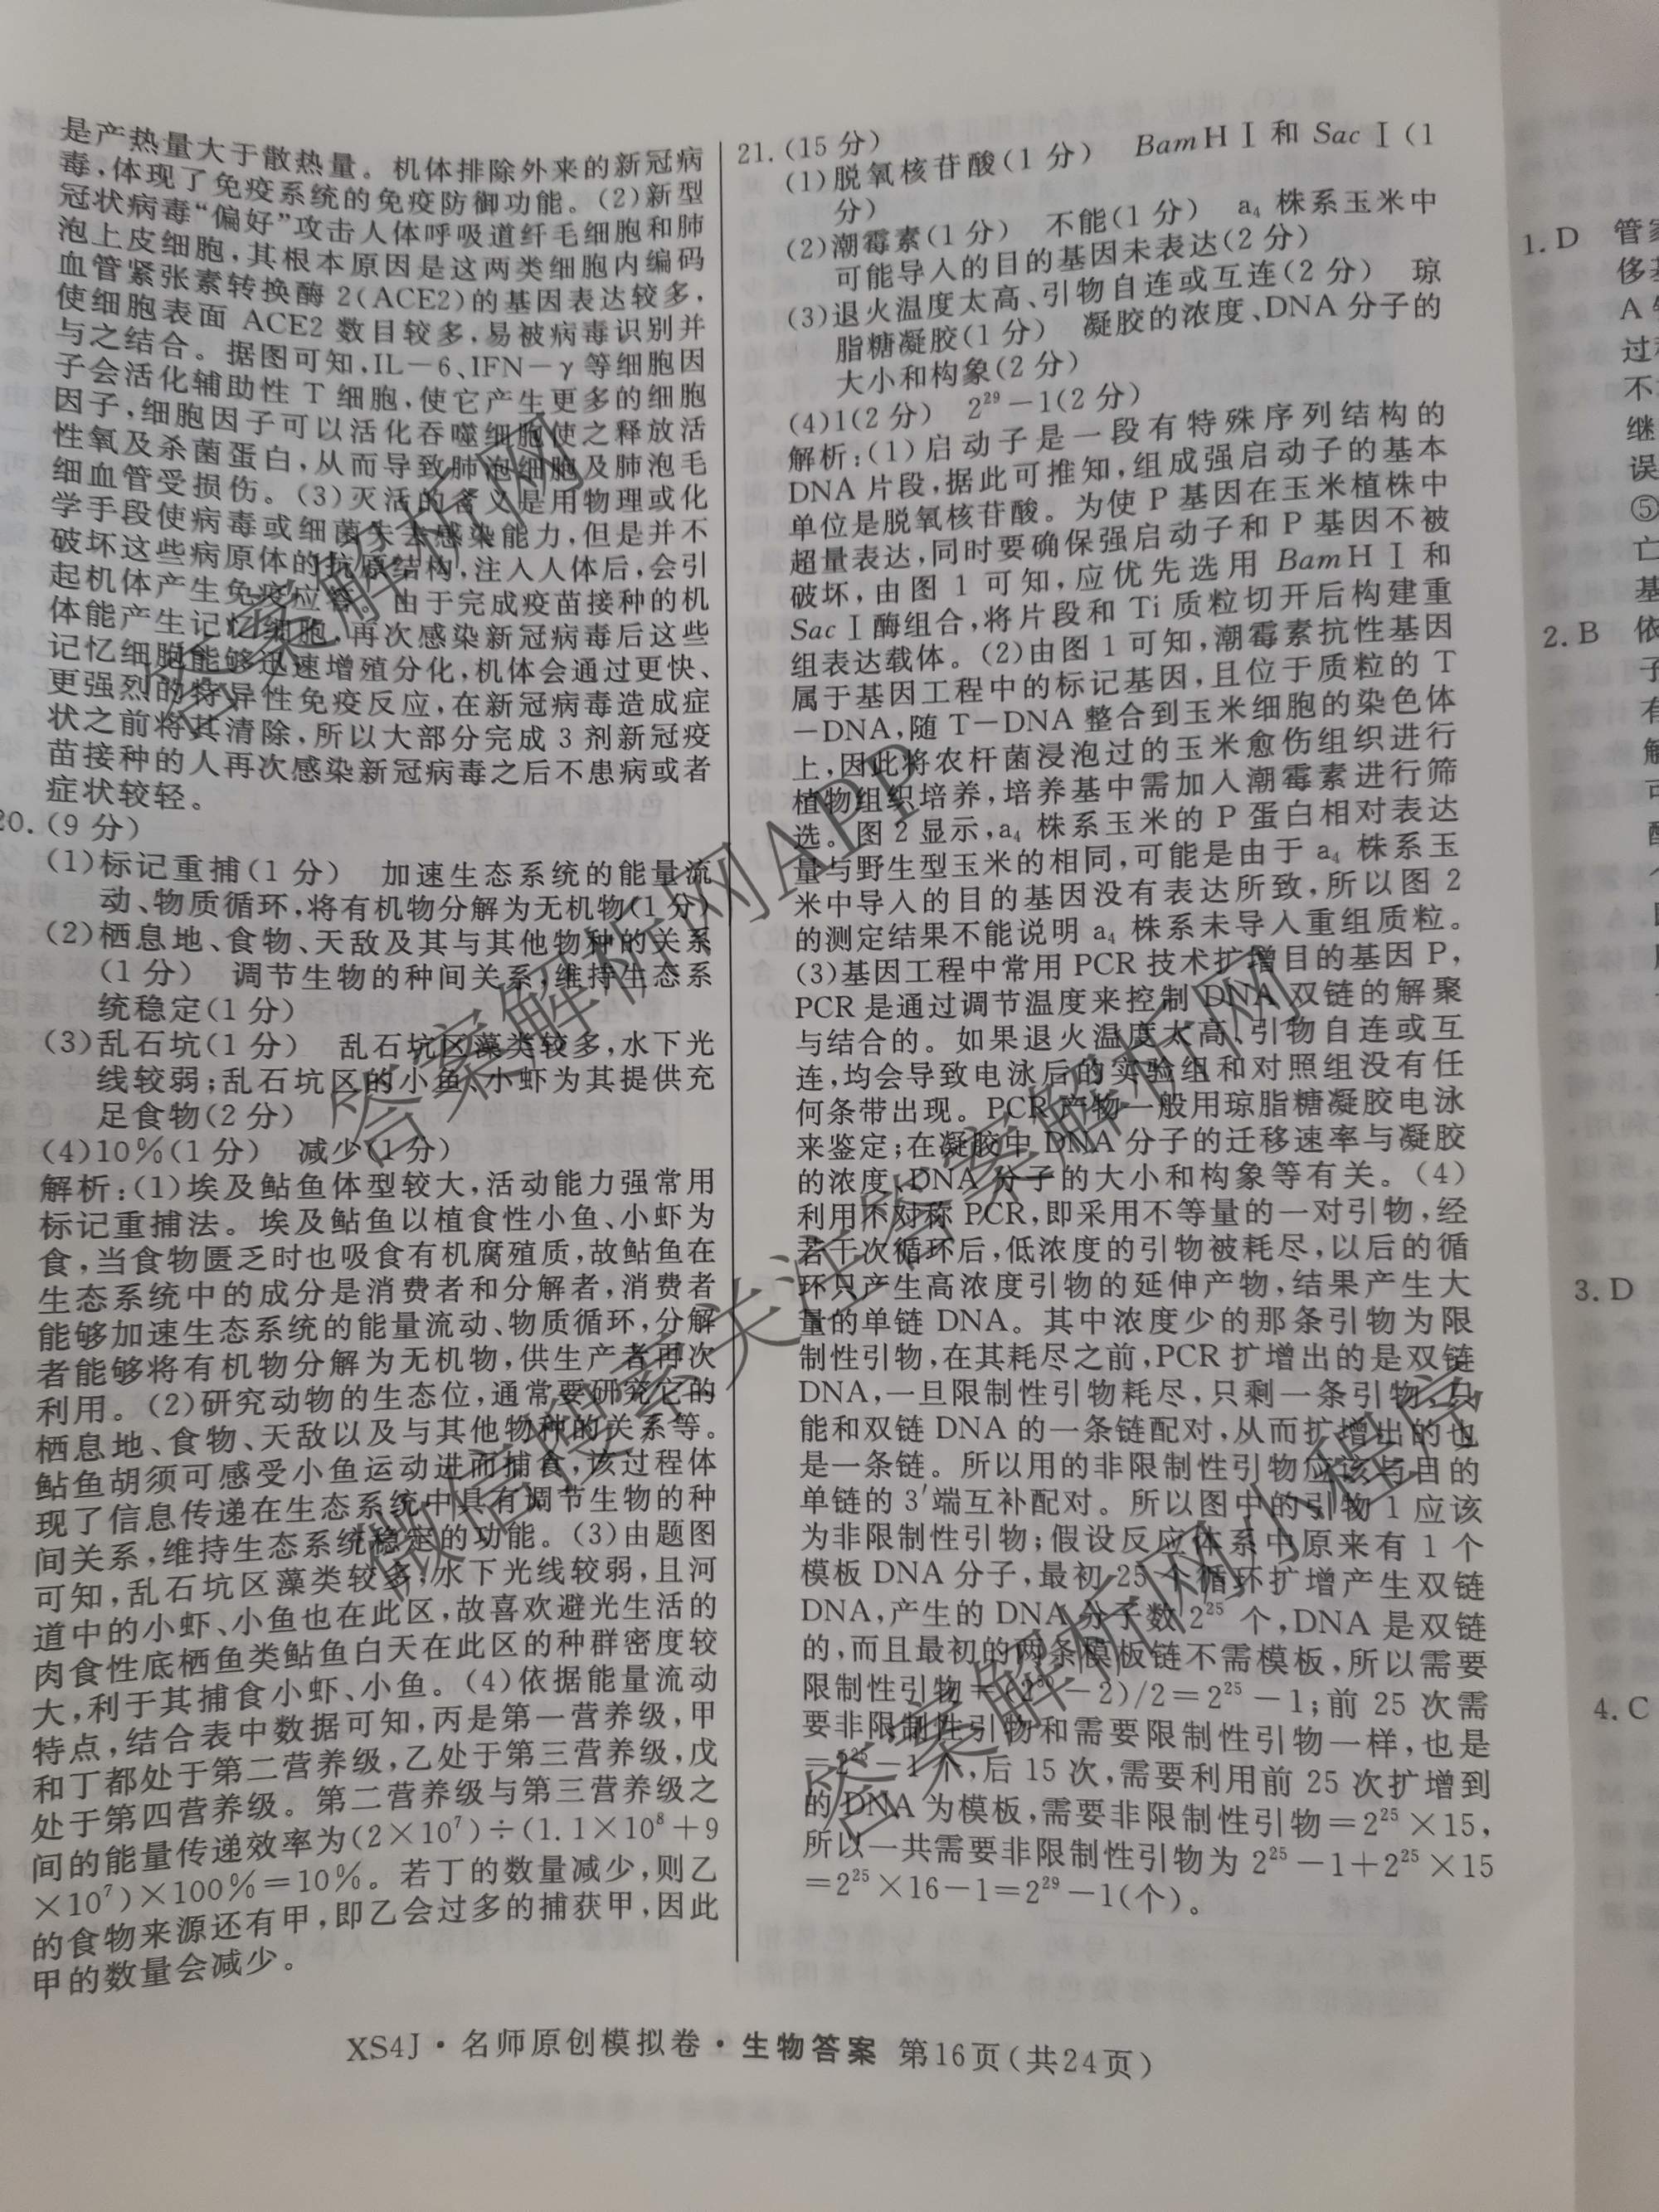 是产热量大于散热量。机体排除外来的新冠病
毒,体现了免疫系统的免疫防御功能。(2)新型
冠状病毒“偏好”攻击人体呼吸道纤毛细胞和肺
泡上皮细胞,其根本原因是这两类细胞内编码
血管紧张素转换酶2(ACE2)的基因表达较多,
使细胞表面ACE2数目较多,易被病毒识别并
与之结合。据图可知,IL-6、IFN-γ等细胞因
子会活化辅助性T细胞,使它产生更多的细胞
因子,细胞因子可以活化吞噬细胞使之释放活
性氧及杀菌蛋白,从而导致肺泡细胞及肺泡毛
细血管受损伤。(3)灭活的含义是用物理或化
学手段使病毒或细菌失去感染能力,但是并不
破坏这些病原体的抗原结构,注入人体后,会引
起机体产生免疫应答。由于完成疫苗接种的机
体能产生记忆细胞,再次感染新冠病毒后这些
记忆细胞能够迅速增殖分化,机体会通过更快、
更强烈的特异性免疫反应,在新冠病毒造成症
状之前将其清除,所以大部分完成3剂新冠疫
苗接种的人再次感染新冠病毒之后不患病或者
症状较轻。
20.(9分)
(1)标记重捕(1分) 加速生态系统的能量流
动、物质循环,将有机物分解为无机物(1分)
(2)栖息地、食物、天敌及其与其他物种的关系
(1分) 调节生物的种间关系,维持生态系
统稳定(1分)
(3)乱石坑(1分) 乱石坑区藻类较多,水下光
线较弱;乱石坑区的小鱼、小虾为其提供充
足食物(2分)
(4)10%(1分) 减少(1分)
解析:(1)埃及鲇鱼体型较大,活动能力强常用
标记重捕法。埃及鲇鱼以植食性小鱼、小虾为
食,当食物匮乏时也吸食有机腐殖质,故鲇鱼在
生态系统中的成分是消费者和分解者,消费者
能够加速生态系统的能量流动、物质循环,分解
者能够将有机物分解为无机物,供生产者再次
利用。(2)研究动物的生态位,通常要研究它的
栖息地、食物、天敌以及与其他物种的关系等。
鲇鱼胡须可感受小鱼运动进而捕食,该过程体
现了信息传递在生态系统中具有调节生物的种
间关系,维持生态系统稳定的功能。(3)由题图
可知,乱石坑区藻类较多,水下光线较弱,且河
道中的小虾、小鱼也在此区,故喜欢避光生活的
肉食性底栖鱼类鲇鱼白天在此区的种群密度较
大,利于其捕食小虾、小鱼。(4)依据能量流动
特点,结合表中数据可知,丙是第一营养级,甲
和丁都处于第二营养级,乙处于第三营养级,戊
处于第四营养级。第二营养级与第三营养级之
间的能量传递效率为(2×10⁷)÷(1.1×10⁸+9
×10⁷)×100%=10%。若丁的数量减少,则乙
的食物来源还有甲,即乙会过多的捕获甲,因此
甲的数量会减少。
21.(15分)
(1)脱氧核苷酸(1分) BamHⅠ和SacⅠ(1
分)
(2)潮霉素(1分) 不能(1分) a₄株系玉米中
可能导入的目的基因未表达(2分)
(3)退火温度太高、引物自连或互连(2分) 琼
脂糖凝胶(1分) 凝胶的浓度、DNA分子的
大小和构象(2分)
(4)1(2分) 2²⁹-1(2分)
解析:(1)启动子是一段有特殊序列结构的
DNA片段,据此可推知,组成强启动子的基本
单位是脱氧核苷酸。为使P基因在玉米植株中
超量表达,同时要确保强启动子和P基因不被
破坏,由图1可知,应优先选用BamHⅠ和
SacⅠ酶组合,将片段和Ti质粒切开后构建重
组表达载体。(2)由图1可知,潮霉素抗性基因
属于基因工程中的标记基因,且位于质粒的T
-DNA,随T-DNA整合到玉米细胞的染色体
上,因此将农杆菌浸泡过的玉米愈伤组织进行
植物组织培养,培养基中需加入潮霉素进行筛
选。图2显示,a₄株系玉米的P蛋白相对表达
量与野生型玉米的相同,可能是由于a₄株系玉
米中导入的目的基因没有表达所致,所以图2
的测定结果不能说明a₄株系未导入重组质粒。
(3)基因工程中常用PCR技术扩增目的基因P,
PCR是通过调节温度来控制DNA双链的解聚
与结合的。如果退火温度太高、引物自连或互
连,均会导致电泳后的实验组和对照组没有任
何条带出现。PCR产物一般用琼脂糖凝胶电泳
来鉴定;在凝胶中DNA分子的迁移速率与凝胶
的浓度、DNA分子的大小和构象等有关。(4)
利用不对称PCR,即采用不等量的一对引物,经
若干次循环后,低浓度的引物被耗尽,以后的循
环只产生高浓度引物的延伸产物,结果产生大
量的单链DNA。其中浓度少的那条引物为限
制性引物,在其耗尽之前,PCR扩增出的是双链
DNA,一旦限制性引物耗尽,只剩一条引物,只
能和双链DNA的一条链配对,从而扩增出的也
是一条链。所以用的非限制性引物应该与目的
单链的3′端互补配对。所以图中的引物1应该
为非限制性引物;假设反应体系中原来有1个
模板DNA分子,最初25个循环扩增产生双链
DNA,产生的DNA分子数2²⁵个,DNA是双链
的,而且最初的两条模板链不需模板,所以需要
限制性引物=-2)/2=2²⁵-1;前25次需
要非限制性引物和需要限制性引物一样,也是
=2²⁵-1个,后15次,需要利用前25次扩增到
的DNA为模板,需要非限制性引物=2²⁵×15,
所以一共需要非限制性引物为2²⁵-1+2²⁵×15
=2²⁵×16-1=2²⁹-1(个)。
XS4J·名师原创模拟卷·生物答案 第16页(共24页)
1.D 管
侈基
A
过
不
继
误
⑤
亡
基
2.B 依
子
有
解
可
3.D
4.C
答案解析网
答案解析网APP
微信搜索关注答案解析网
答案解析网小程序